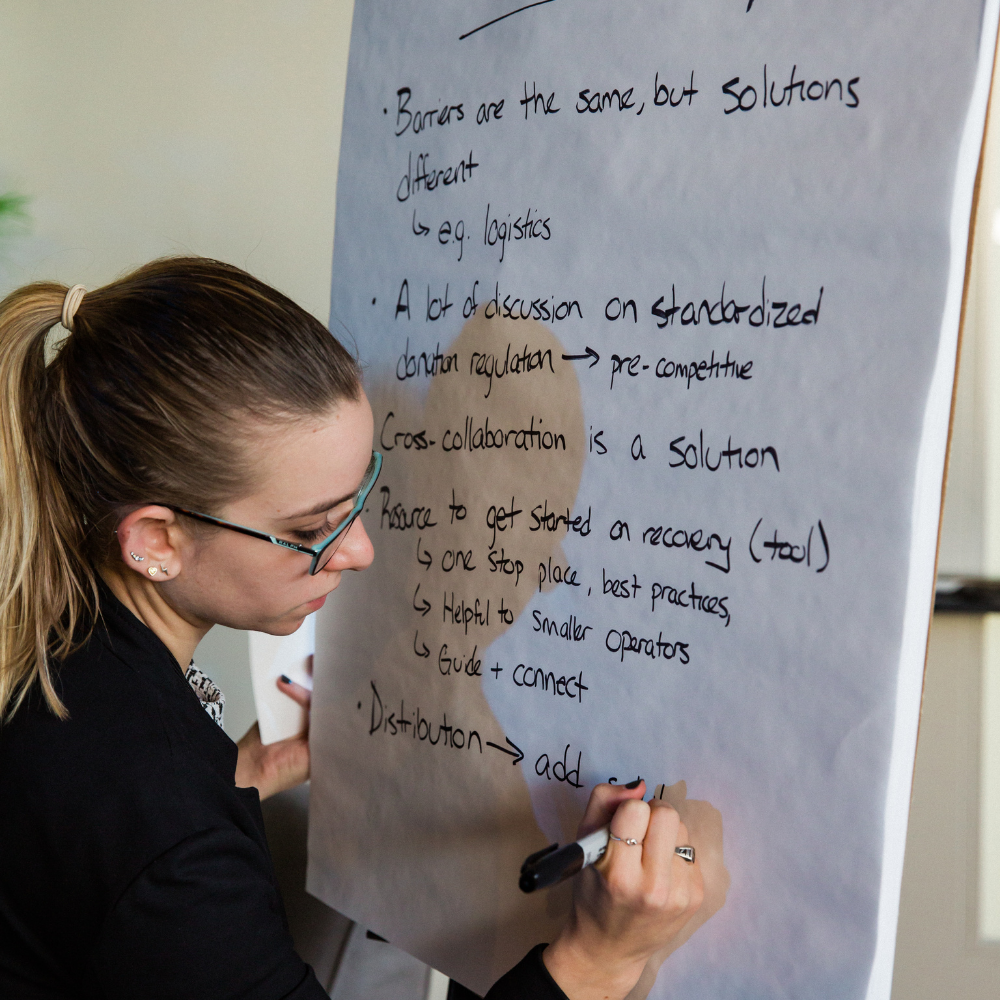 · Barriers are the same, but solutions
different
↳ e.g. logistics
· A lot of discussion on standardized
donation regulation → pre-competitive
Cross-collaboration is a solution
· Resource to get started on recovery (tool)
↳ one stop place, best practices,
↳ Helpful to smaller operators
↳ Guide + connect
· Distribution → add